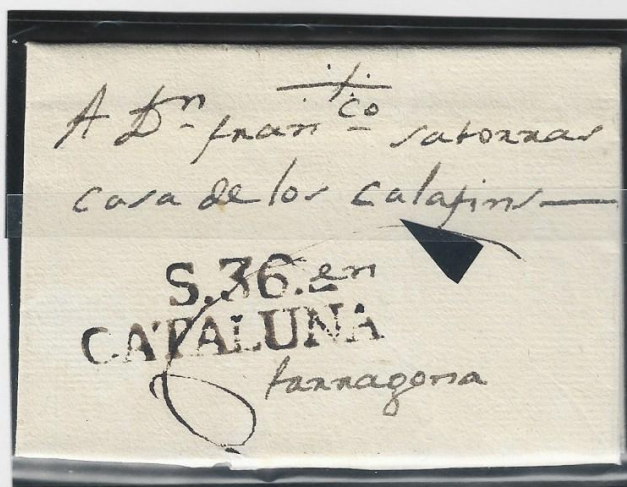 A Dn. Franco satorras
casa de los Calafins
S.36. en
CATALUNA
tarragona